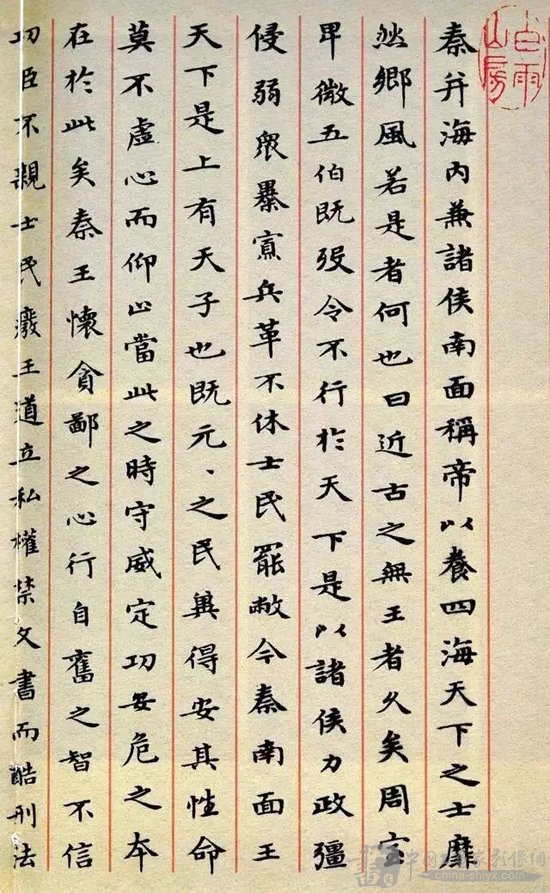 白雨
山房
秦并海内兼諸侯南面稱帝以養四海天下之士靡
然鄉風若是者何也曰近古之無王者久矣周室
卑微五伯既歿令不行於天下是以諸侯力政彊
侵弱眾暴寡兵革不休士民罷敝今秦南面王
天下是上有天子也既元、之民冀得安其性命
莫不虛心而仰上當此之時守威定功安危之本
在於此矣秦王懷貪鄙之心行自奮之智不信
功臣不親士民廢王道立私權禁文書而酷刑法
china-shiyx.com